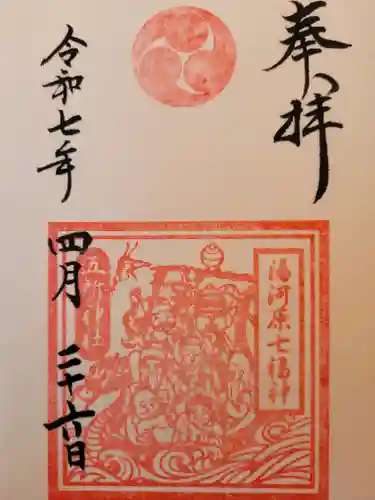 奉拝
令和七年
四月二十六日
湯河原七福神
五所神社